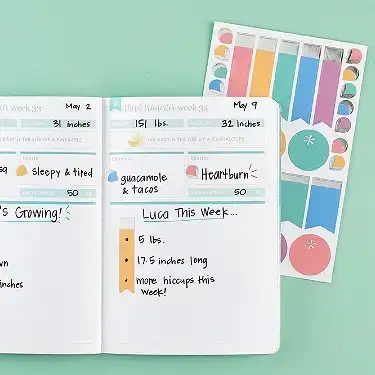 week 33
May 2
31 inches
THE BABY IS THE SIZE OF A PINEAPPLE
HEALTH
sleepy & tired
50
's Growing!
wn
inches
third trimester week 34
May 9
151 lbs.
32 inches
THE BABY IS THE SIZE OF A CANTALOUPE
CRAVINGS
HEALTH
guacamole
& tacos
Heartburn
50
Luca This Week...
• 5 lbs.
• 17.5 inches long
• more hiccups this
week!